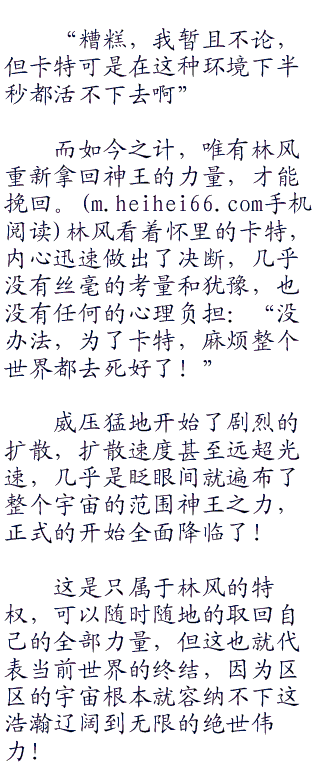 “糟糕，我暂且不论，
但卡特可是在这种环境下半
秒都活不下去啊”
而如今之计，唯有林风
重新拿回神王的力量，才能
挽回。(m.heihei66.com手机
阅读)林风看着怀里的卡特，
内心迅速做出了决断，几乎
没有丝毫的考量和犹豫，也
没有任何的心理负担：“没
办法，为了卡特，麻烦整个
世界都去死好了！”
威压猛地开始了剧烈的
扩散，扩散速度甚至远超光
速，几乎是眨眼间就遍布了
整个宇宙的范围神王之力，
正式的开始全面降临了！
这是只属于林风的特
权，可以随时随地的取回自
己的全部力量，但这也就代
表当前世界的终结，因为区
区的宇宙根本就容纳不下这
浩瀚辽阔到无限的绝世伟
力！